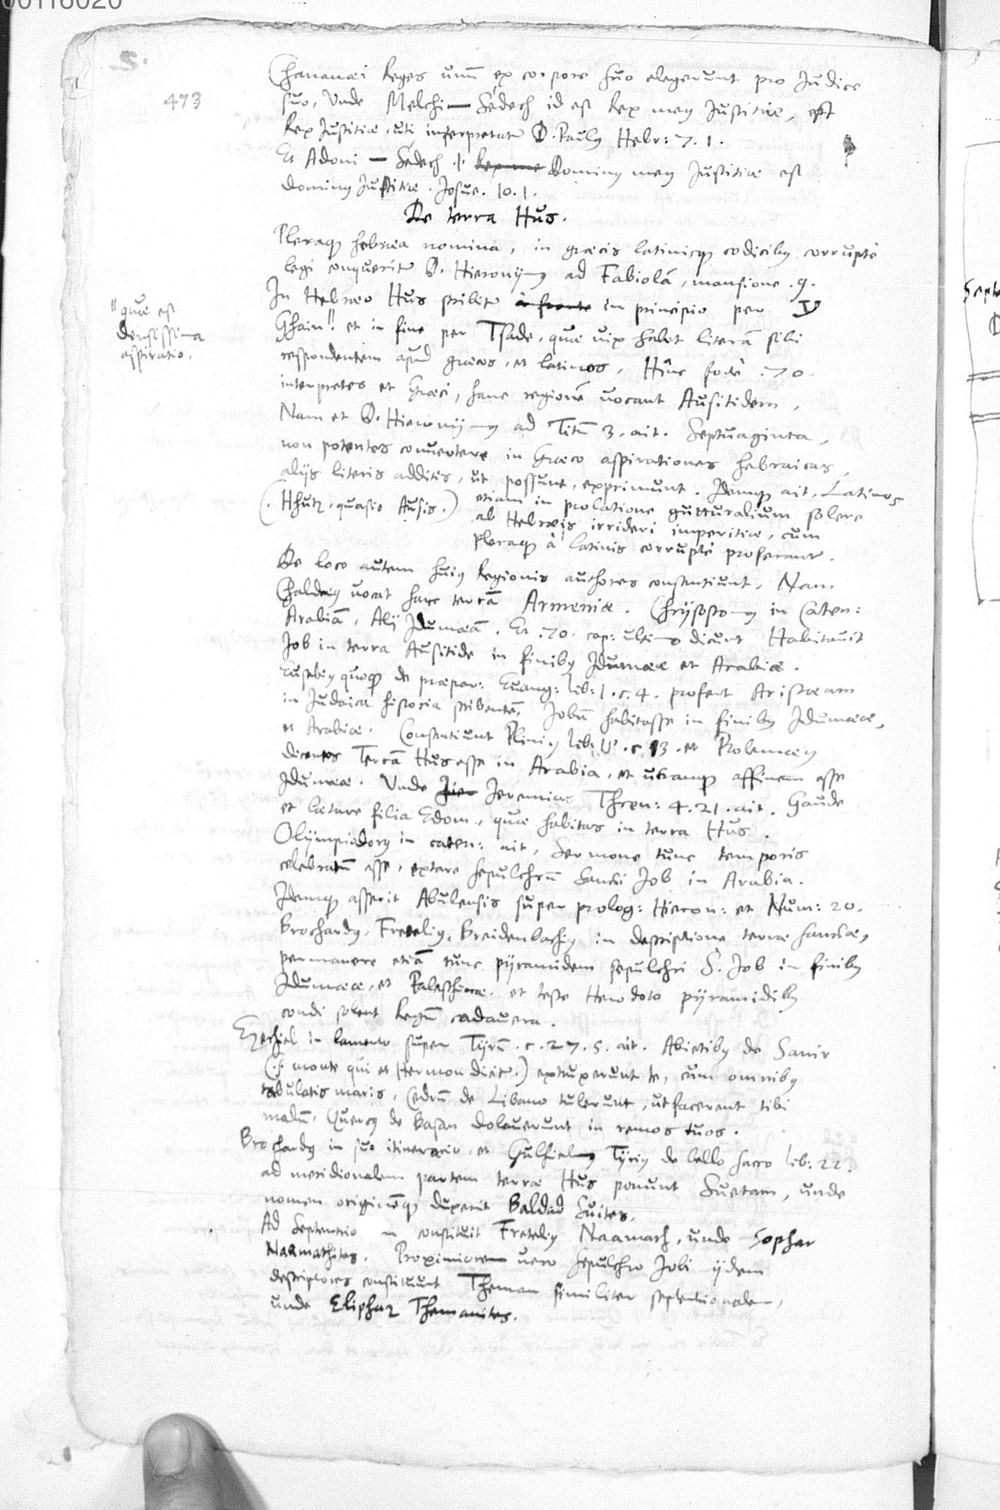 00116020
S.
473
Chananaei Reges unum ex corpore suo elegerunt pro Judice
suo, Unde Melchi — Sedech id est Rex meus Justitiae, est
Rex Justitiae, uti interpretatur D. Paulus Hebr: 7. 1.
Et Adoni — Sedech .i. Dominus meus Justitiae est
Dominus Justitiae. Josue. 10. 1.
De terra Hus.
Pleraq hebraea nomina, in graecis latinisq codicibus, corrupte
legi conqueritur D. Hieronijmus ad Fabiolā, mansione .9.
In Hebraeo Hus scribitur a fronte in principio per ע
Ghain" et in fine per Tsade, quae vix habet literā sibi
"quae est
densissima
aspiratio.
respondentem apud graecos, et latinos, Hinc forte .70.
interpretes et Graeci, hanc regionē vocant Ausitidem,
Nam et D. Hieronijmus ad Titū 3. ait. Septuaginta,
non potentes convertere in Graeco aspirationes hebraicas,
alijs literis additis, ut possunt, exprimunt. Idemq ait, Latinos
(. Hhutz, quasio Ausis.) etiam in prolatione gutturalium solere
ab Hebraeis irrideri imperitiae, cum
pleraq â latinis corruptè proferantur.
De loco autem huius Regionis authores consentiunt, Nam
Chaldaeus vocat hanc terrā Armeniae. Chrijsostomus in Caten:
Arabiā, Alij Idumaeā. Et .70. cap: ultimo dicunt Habitavit
Job in terra Ausitide in finibus Idumaeae et Arabiae.
Eusebius quoq de praepar: Evang: lib: 1. c. 4. profert Aristaeam
in Judaica historia scribentē, Jobū habitasse in finibus Idumaeae,
et Arabiae. Consentiunt Plinius lib: V. c. 13. et Ptolemaeus
dicentes Terrā Hus esse in Arabia, et utramq affinem esse
Idumaeae. Unde Hier Jeremias Thren: 4. 21. ait. Gaude
et laetare filia Edom, quae habitas in terra Hus.
Olijmpiodorus in caten: ait, Sermone tunc temporis
celebratū esse, extare sepulchrū Sancti Job in Arabia.
Idemq asserit Abulensis super prolog: Hieron: et Num: 20.
Brochardus, Fretelius, Breidenbachius in descriptione terrae Sanctae,
permanere etiā tunc pijramidem sepulchri S. Job in finibus
Idumaeae, et Palesthinae, et teste Herodoto pijramidibus
condi solent Regū cadavera.
Ezechiel in lamento super Tijrū. c. 27. 5. ait. Abietibus de Sanir
(.i. monte qui et Hermon dicitur.) extruxerunt te, cum omnibus
tabulatis maris, Cedrū de Libano tulerunt, ut facerent tibi
malū, Quercus de Basan dolaverunt in remos tuos.
Brochardus in suo itinerario, et Gulhielmus Tijrius de bello sacro lib: 22.
ad meridionalem partem terrae Hus ponunt Suetam, unde
nomen originēq duxerit Baldad Suites.
Ad Septentrio n constituit Fretelius Naamath, unde Sophar
Naamathites. Proximiorem vero sepulchro Jobi ijdem
descriptores constituunt Theman similiter septentionalem,
unde Eliphaz Themanites.